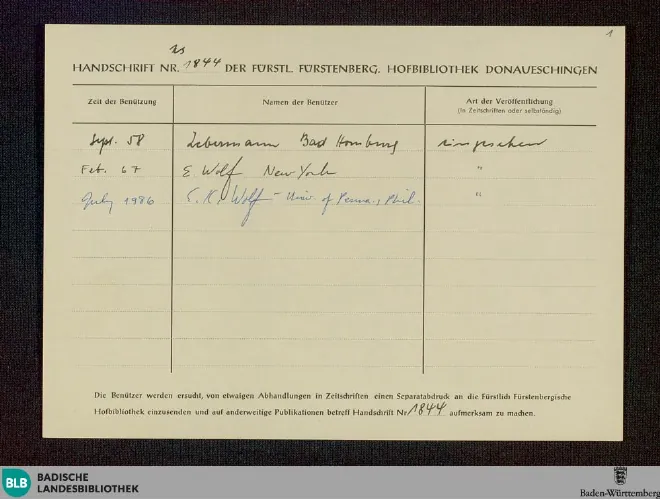 1
HANDSCHRIFT NR. 1844 DER FÜRSTL. FÜRSTENBERG. HOFBIBLIOTHEK DONAUESCHINGEN
Zeit der Benützung Namen der Benützer Art der Veröffentlichung
(in Zeitschriften oder selbständig)
Sept. 58 Lebermann Bad Homburg eingesehen
Feb. 67 E. Wolf New York "
July 1986 E. K. Wolf - Univ. of Penna., Phil. "
Die Benützer werden ersucht, von etwaigen Abhandlungen in Zeitschriften einen Separatabdruck an die Fürstlich Fürstenbergische
Hofbibliothek einzusenden und auf anderweitige Publikationen betreff Handschrift Nr. 1844 aufmerksam zu machen.
BLB BADISCHE
LANDESBIBLIOTHEK
Baden-Württemberg